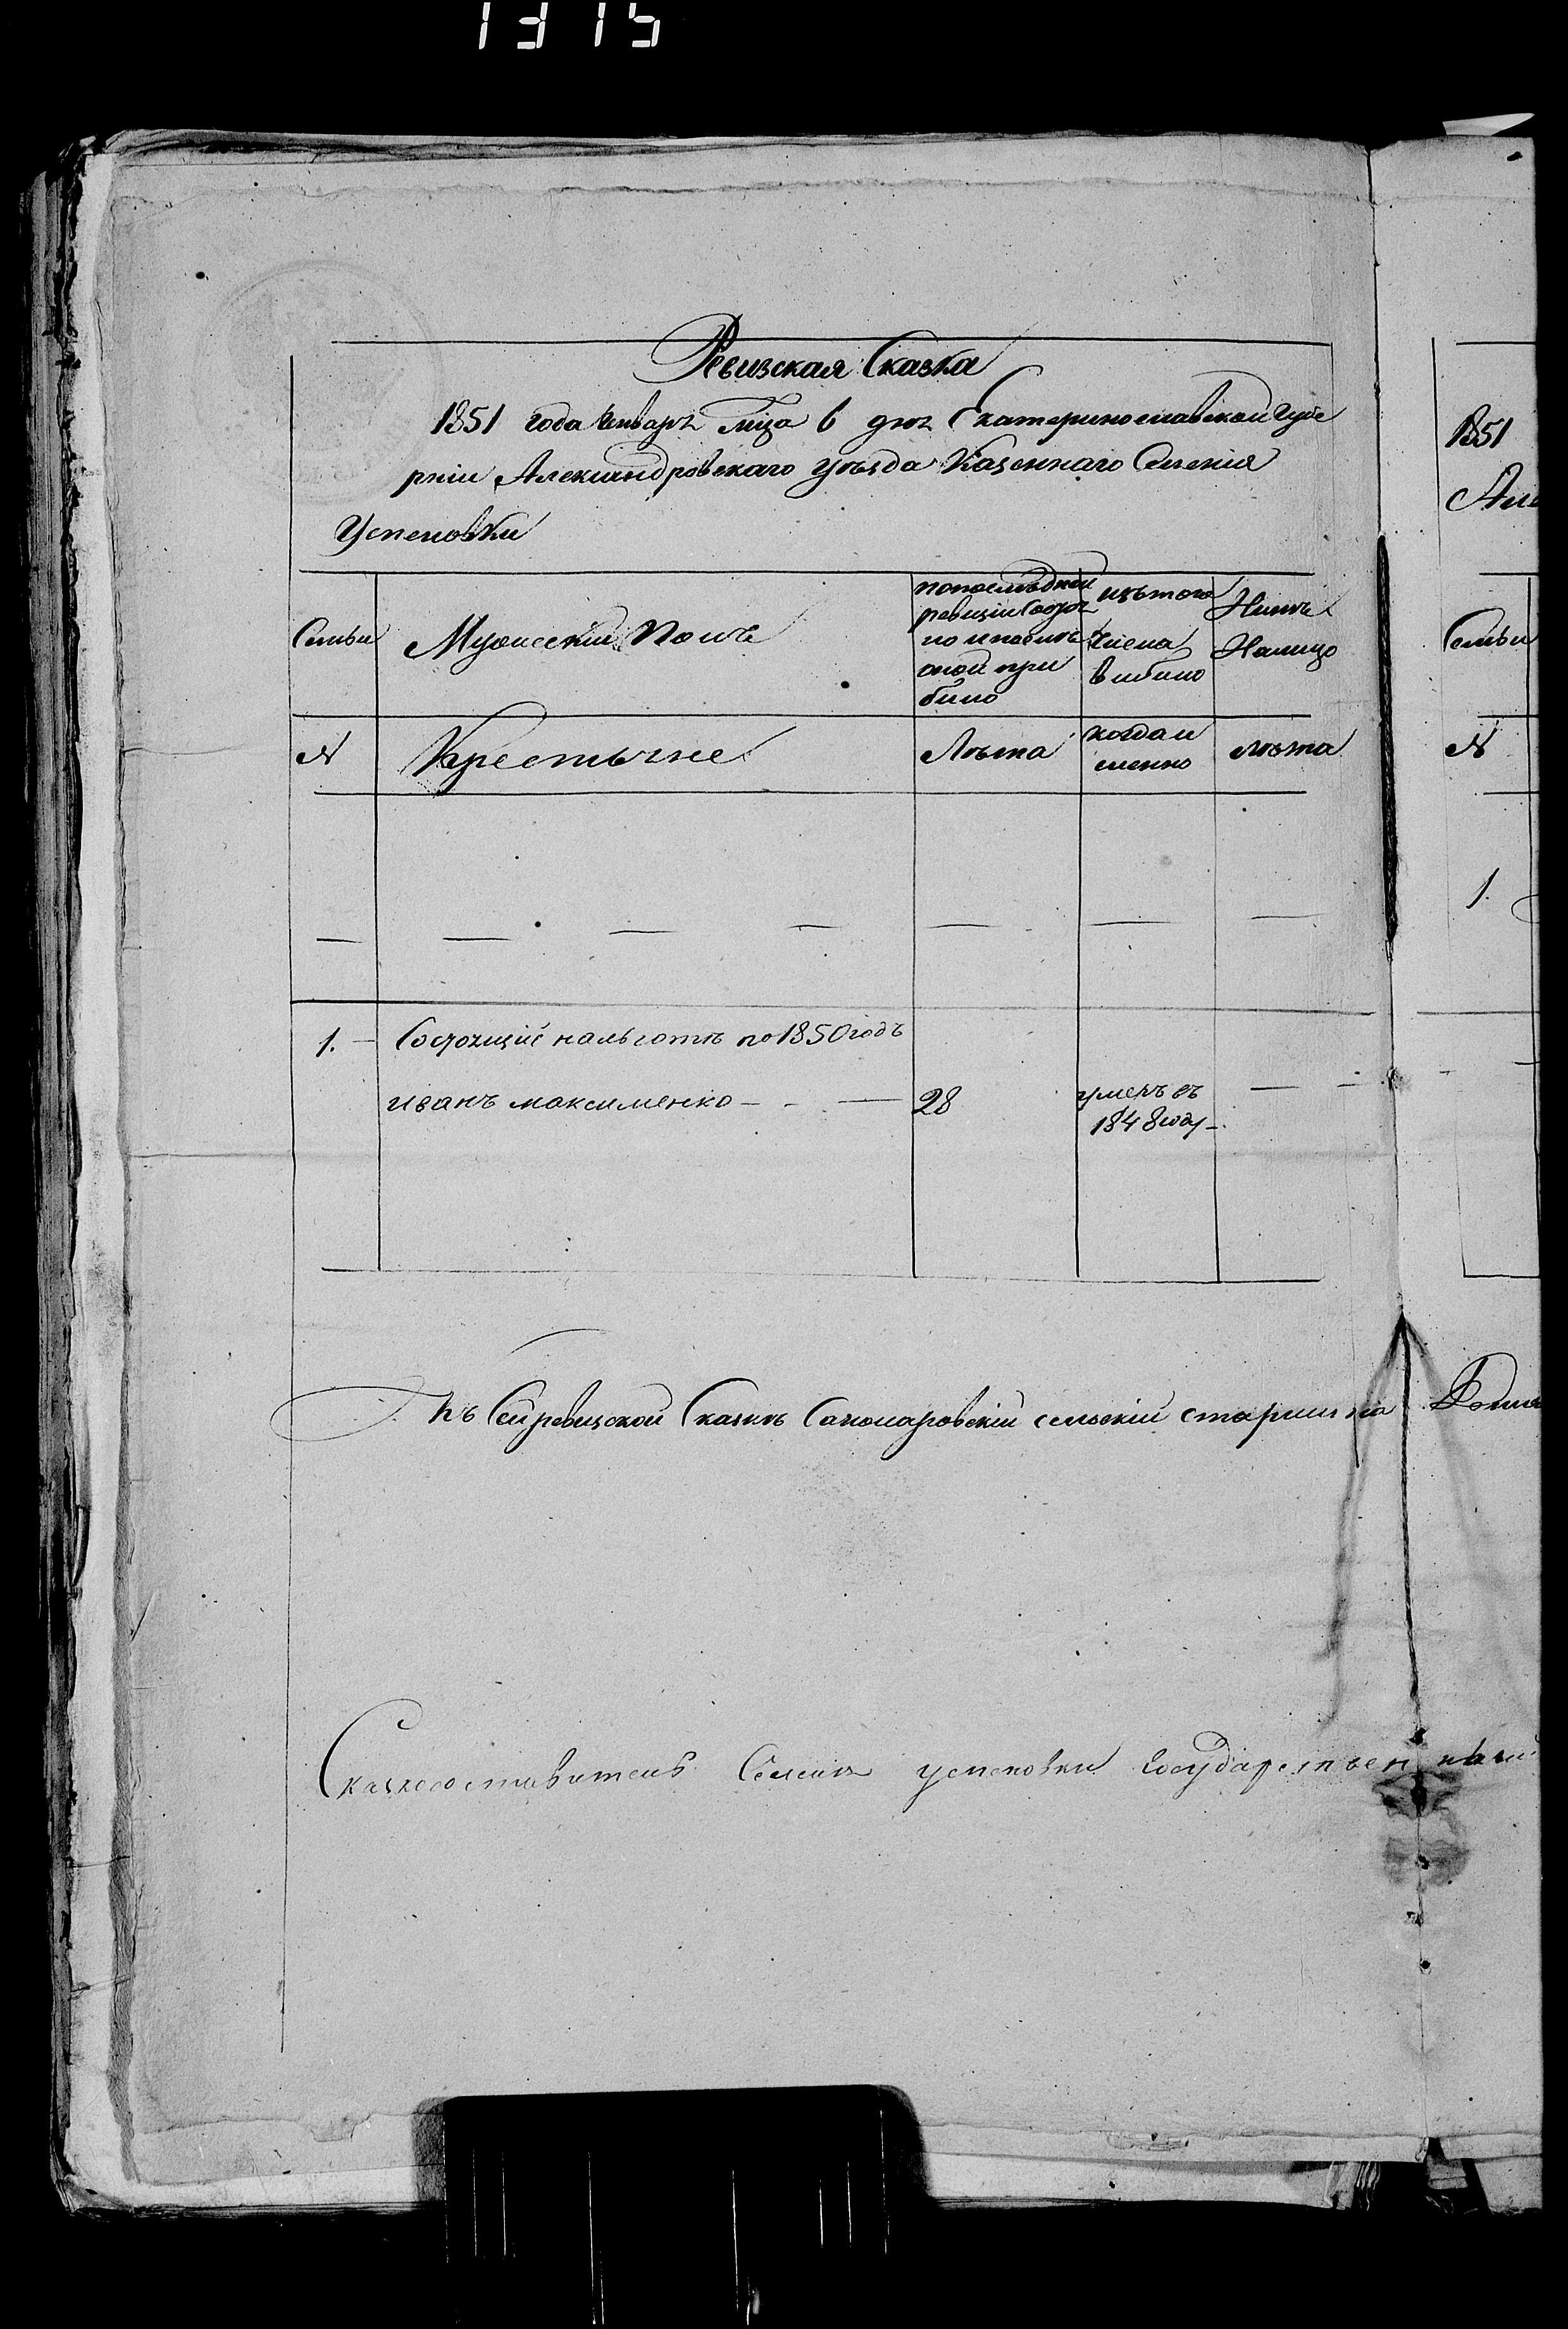 1315
Ревизская Сказка
1851 года Января м͠ца 6 дня Екатеринославской Губе
рніи Александровскаго Уѣзда Казеннаго Селенія
Успеновки
Семьи
Мужескій Полъ
по послѣдней
ревизіи состоя
ло и послѣ
оной при
было
изъ того
числа
выбыло
Нынѣ
Налицо
N
Крестьяне
Лѣта
когда и
менно
лѣта
1. Состоящій нальготѣ по 1850 годъ
иванъ максименко 28 умеръ въ
1848 году
Къ Сей ревизской Сказкѣ сельскій старшина
Сказкосоставитель Селенія успеновки Государственный
1851
Але
Семьи
N
1.